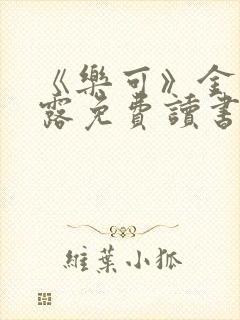 《樂可》全
露免費讀書
維葉小狐